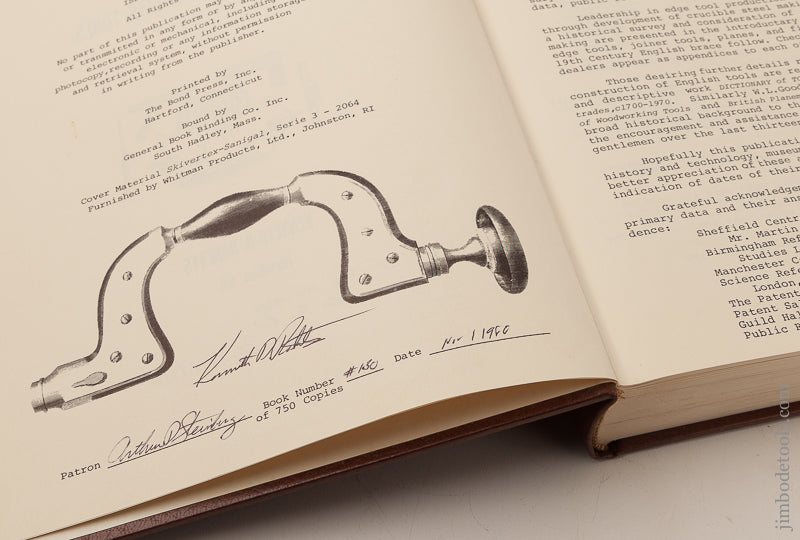 All Rights
No part of this publication may
or transmitted in any form or by
electronic or mechanical, including
photocopy,recording or any information storage
and retrieval system, without permission
in writing from the publisher.
Printed by
The Bond Press, Inc.
Hartford, Connecticut
Bound by
General Book Binding Co. Inc.
South Hadley, Mass.
Cover Material Skivertex-Sanigal, Serie 3 - 2064
Furnished by Whitman Products, Ltd., Johnston, RI
Book Number #150 Date Nov 1 1980
of 750 Copies
Patron
data, public
Leadership in edge tool production
through development of crucible steel
a historical survey and consideration of
making are presented in the introductory
edge tools, joiner tools, planes, and
19th Century English brace follow.
dealers appear as appendices to each
Those desiring further details
construction of English tools are
and descriptive work DICTIONARY OF
trades,c1700-1970. Similarly
of Woodworking Tools and British
broad historical background to the
the encouragement and assistance
gentlemen over the last thirteen
Hopefully this
history and technology,
better appreciation of these
indication of dates of their
Grateful
primary data and their
dence: Sheffield
Mr. Martin
Birmingham
Studies
Manchester
Science
London,
The Patent
Patent
Guild
Public
jimbodetools.com